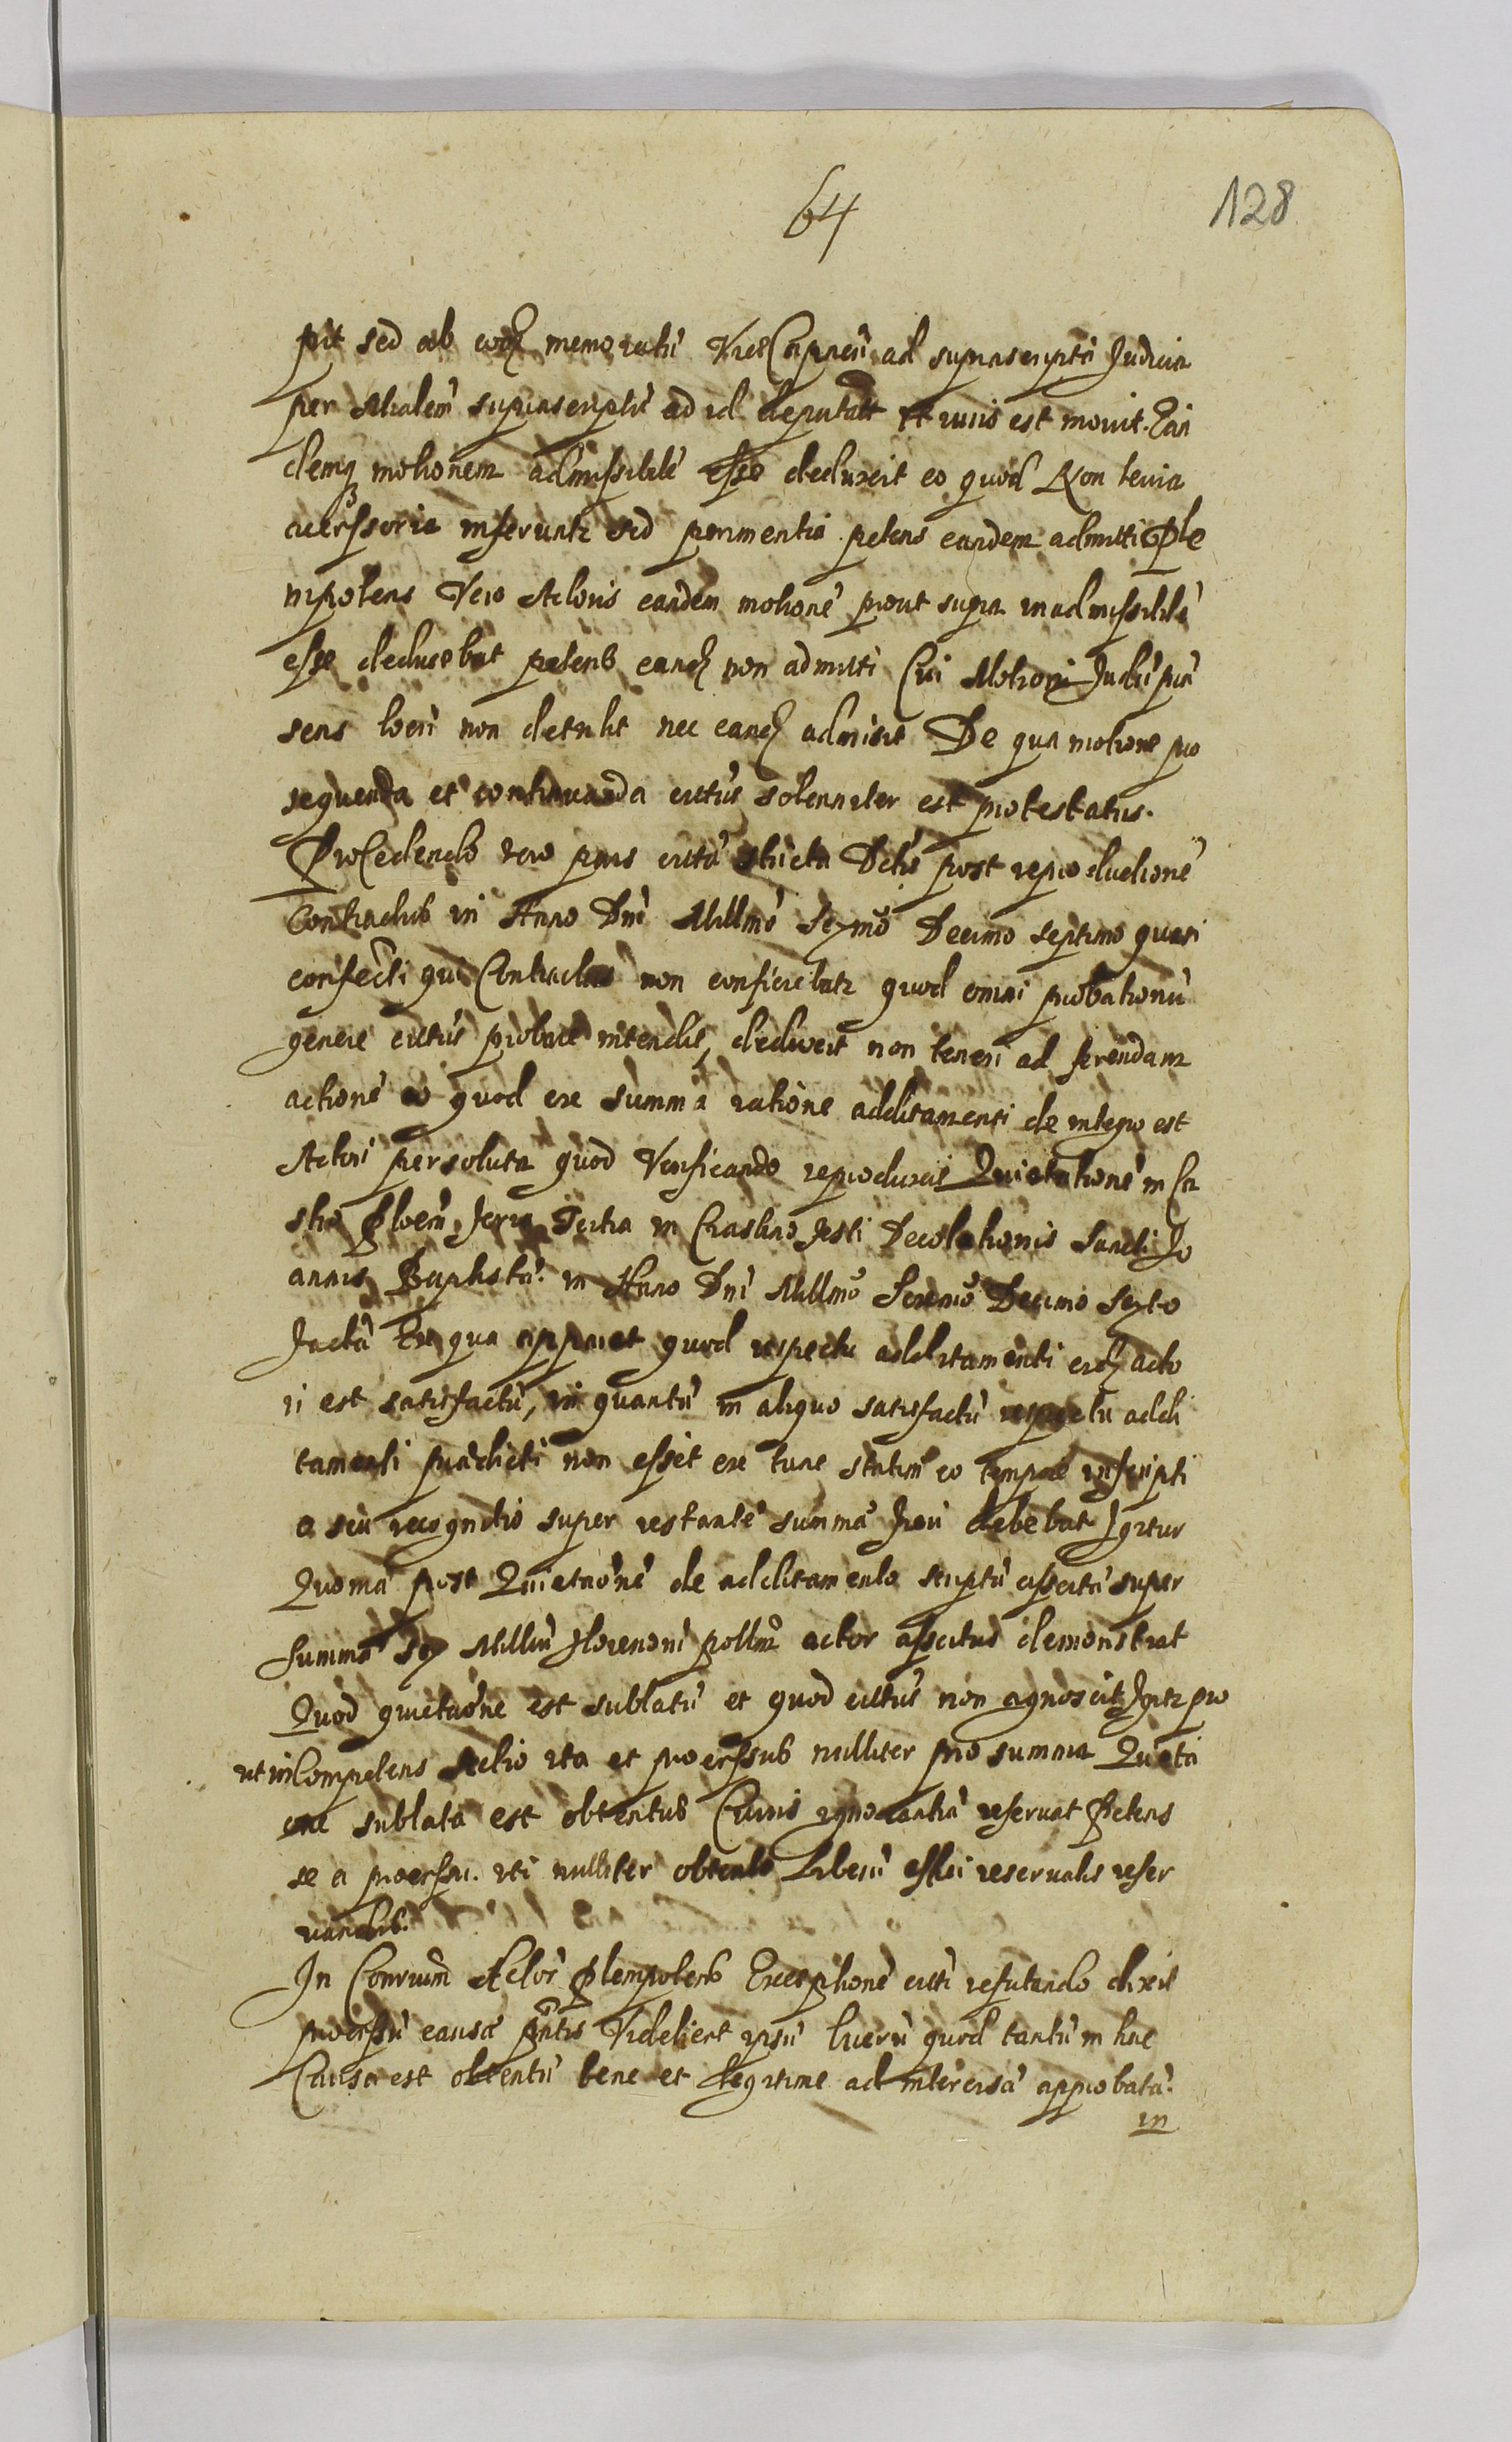 64
128
pit sed ab eodẽ memoratũ Vice Capneũ ad suprascripta Judicia
per Mtialem suprascriptũ ad id deputatũ et iuris est movit. Ean
demq; motionem admissibilẽ esse deduxit eo quod Non levia
accessoria inseruntr sed perimentia petens eandem admitti Ple
nipotens Vero Actoris eandem motionẽ prout supra inadmissibilẽ
esse deducebat petens eandẽ non admitti Cui Motioni Judiũ prã
sens locũ non detulit nec eandẽ admisit De qua motione pro
sequenda et continuanda cittus solenniter est protestatus.
Procedendo vero pars citta stricta Dctũ post reproductionẽ
Contractus in Anno Dni Millmõ Seymõ Decimo septimo quasi
confecti qui Contractus non conficiebatr quod omni probationũ
genere cittus probare intendit, deduxit non teneri ad ferendam
actionẽ eo quod ex summa ratione additamenti de integro est
Actori persoluta quod Verificando reproduxit Quietationẽ in Ca
stro Ploceñ feria Tertia in Crastino festi Decolationis Sancti Jo
annis Baptistæ in Anno Dni Millmõ Sexcmõ Decimo Sexto
factã Ex qua apparet quod respectu additamenti eidẽ acto
ri est satisfactũ, in quantũ in aliquo satisfactũ respectu addi
tamenti prædicti non esset ex tunc statim eo tempore inscripti
o seu recognitio super restantẽ summã fieri debebat Igitur
Quoniã post Quietaonẽ de additamento scriptũ assertũ super
summã Sex Milliũ florenorũ pollm actor assertus demonstrat
Quod quietaõne est sublatũ et quod cittus non agnoscit Igitr pro
ut in Competens Actio ita et processus nulliter pro summa Quieta
one sublata est obtentus Cuius ignorantiã reservat Petens
se a processu uti nulliter obtento Liberũ esse salvis reservatis reser
vandis.
In Conrium Actor Plenipotens Exceptionẽ citti refutando dixit
processũ causã pñtis Videlicet ipsũ lucrũ quod tantũ in hac
Causa est obtentũ bene et legitime ad intercisã approbatã.
in